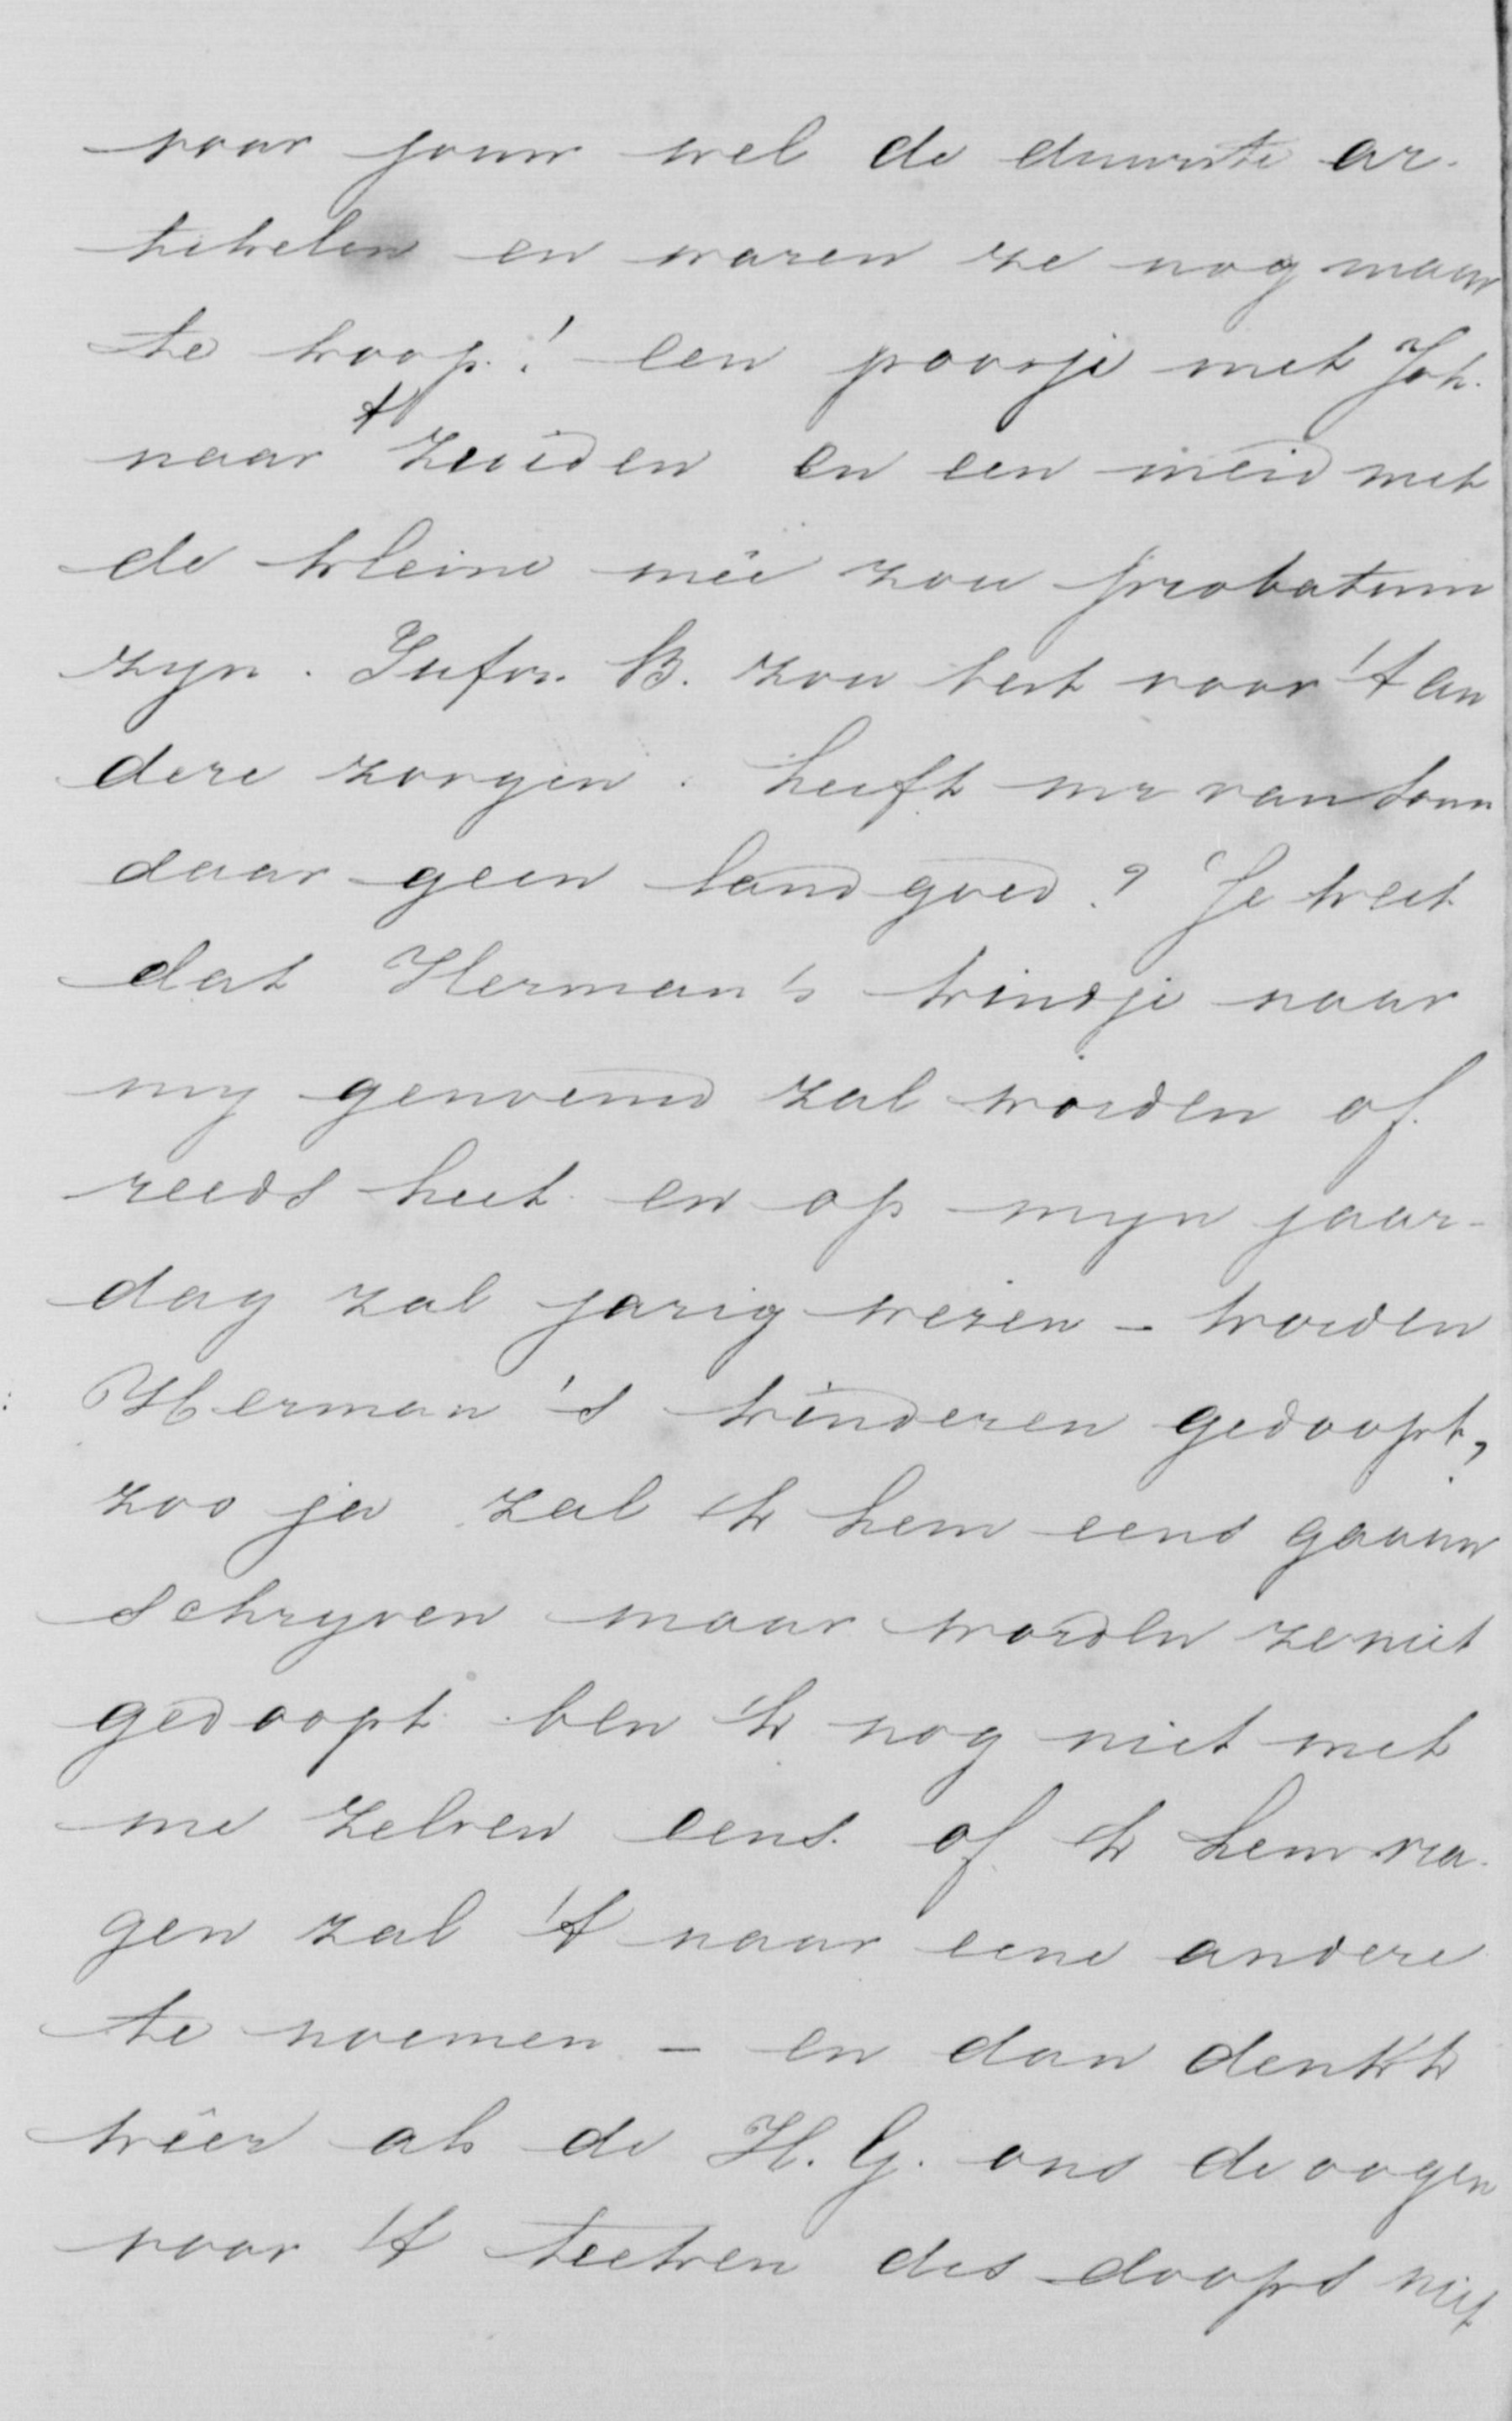 voor jouw wel de duurste ar-
tikelen en waren ze nog maar
te koop! een poosje met Joh.
naar 't Zuiden en een meid met
de kleine mêe zou probatum
zyn. Jufvr. B. zou best voor 't an
dere zorgen. heeft mr van
daar geen landgoed? Je weet
dat Herman's kindje naar
my genoemd zal worden of
reeds heet en op myn jaar-
dag zal jarig wezen - worden
Herman's kinderen gedoopt,
zoo ja zal ik hem eens gaauw
schryven maar worden ze niet
gedoopt ben 'k nog niet met
me zelven eens of ik hem vra-
gen zal 't naar eene andere
te noemen - en dan denk 'k
wêer als de H. G. ons de oogen
voor 't teeken des doops niet